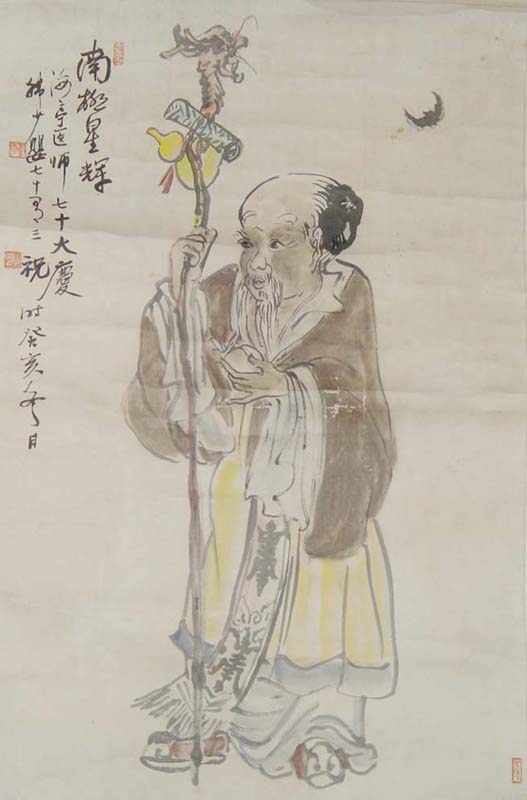 南極星輝
海亭医师七十大慶
韩少嬰七十有三祝时癸亥冬日